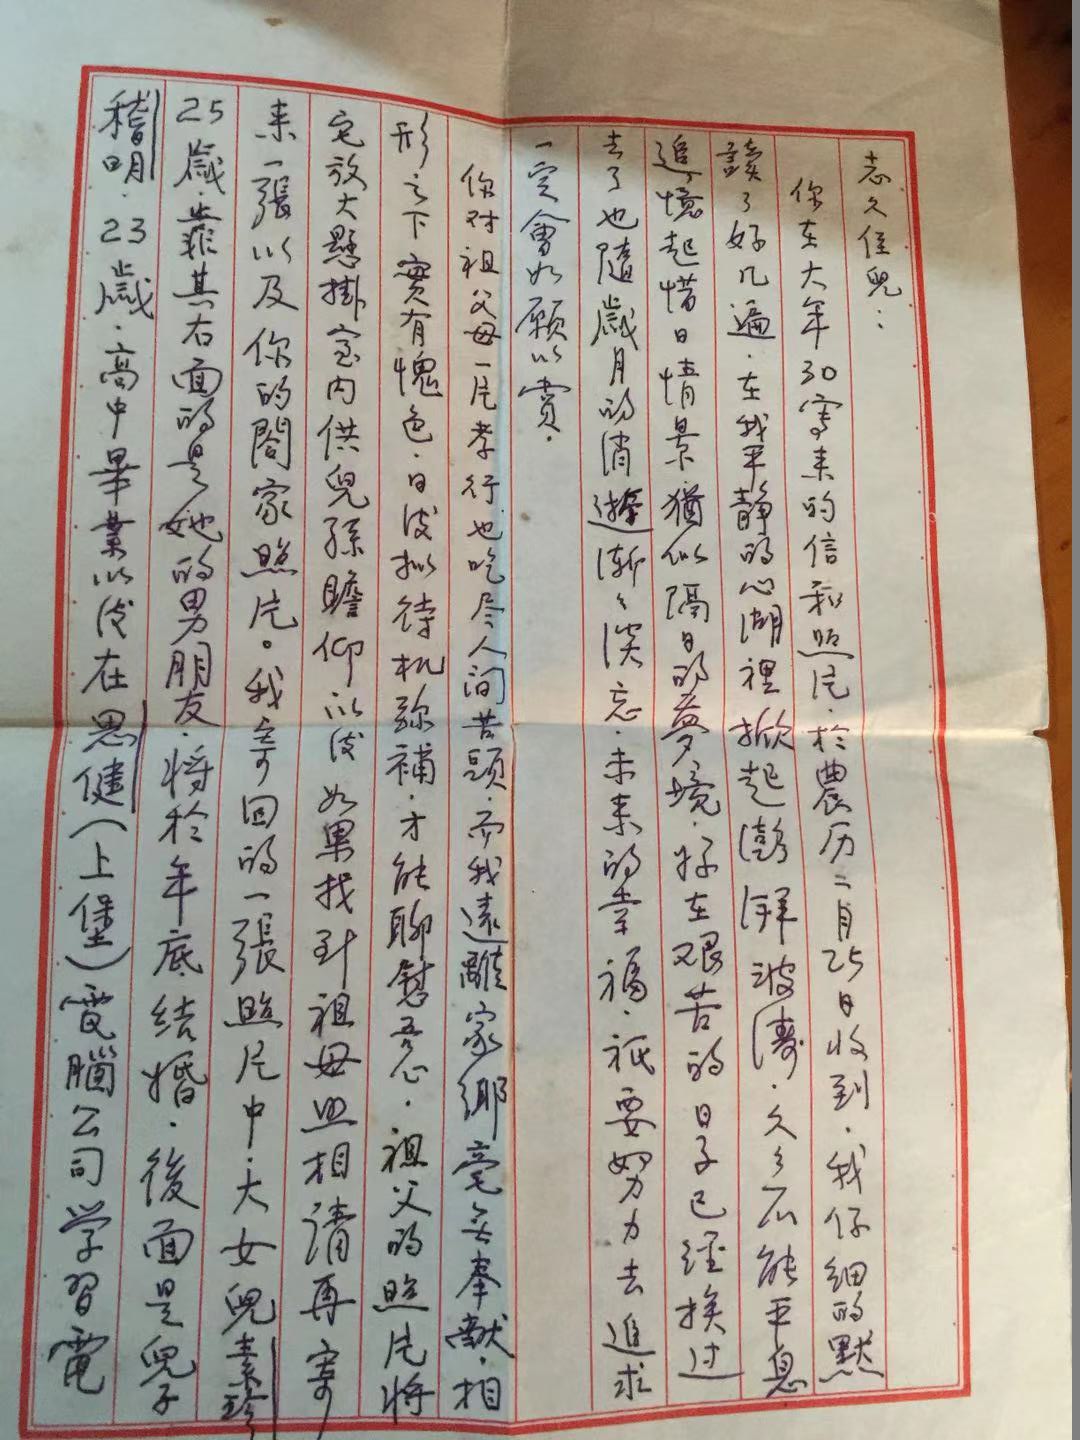 志久侄兒：
你在大年30寄来的信和照片．於農历二月25日收到．我仔細的默
讀了好几遍．在我平静的心湖裡掀起澎湃波濤．久久不能平息
追憶起惜日情景猶似隔日的夢境．好在艰苦的日子已經挨过
去了也隨歲月的消逝漸々淡忘．未来的幸福．祇要努力去追求
一定會如願以賞．
你对祖父母一片孝行也吃尽人间苦頭．而我遠離家鄉毫無奉献．相
形之下實有愧色．日後拟待机弥補．才能聊慰吾心．祖父的照片將
它放大懸掛室内供兒孫瞻仰以後如果找到祖母照相請再寄
来一張以及你的閤家照片。我寄回的一張照片中．大女兒素珍
25歲．靠其右面的是她的男朋友．將於年底结婚．後面是兒子
稽明．23歲．高中畢業以後在思健(上堡)電腦公司学習電